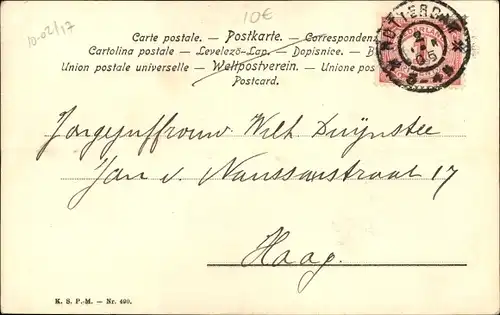 10-02/17
10€
Carte postale. — Postkarte. — Correspondenz
Cartolina postale — Levelező-Lap. — Dopisnice. — B
Union postale universelle — Weltpostverein. — Unione pos
Postcard.
ROTTERDAM
2
05
Jongejuffrouw Wilh Duÿnstee
Jan v. Nanssaustraat 17
Haag.
K. S. P.-M. — Nr. 490.